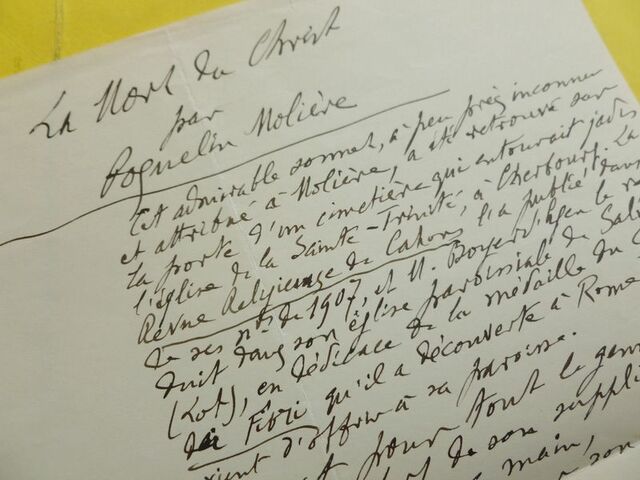 La Mort du Christ
par
Poquelin Molière
Cet admirable sonnet, à peu près inconnu
et attribué à Molière, a été retrouvé sur
la porte d'un cimetière qui entourait jadis
l'église de la Sainte-Trinité, à Cherbourg. La
Revue Religieuse de Cahors l'a publié dans
de ses nos de 1907, et M. Boyer d'Agen le
duit dans son église paroissiale de
(Lot), en dédicace de la médaille du
dei Fiori qu'il a découverte à Rome
vient d'offrir à sa paroisse.
pour tout le
de son
main,
son